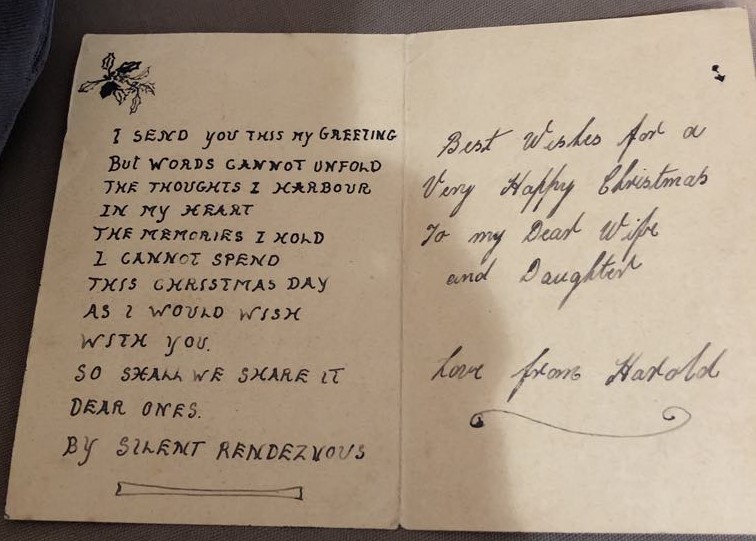 I SEND YOU THIS MY GREETING
BUT WORDS CANNOT UNFOLD
THE THOUGHTS I HARBOUR
IN MY HEART
THE MEMORIES I HOLD
I CANNOT SPEND
THIS CHRISTMAS DAY
AS I WOULD WISH
WITH YOU.
SO SHALL WE SHARE IT
DEAR ONES.
BY SILENT RENDEZVOUS
Best Wishes for a
Very Happy Christmas
To my Dear Wife
and Daughter
Love from Harold